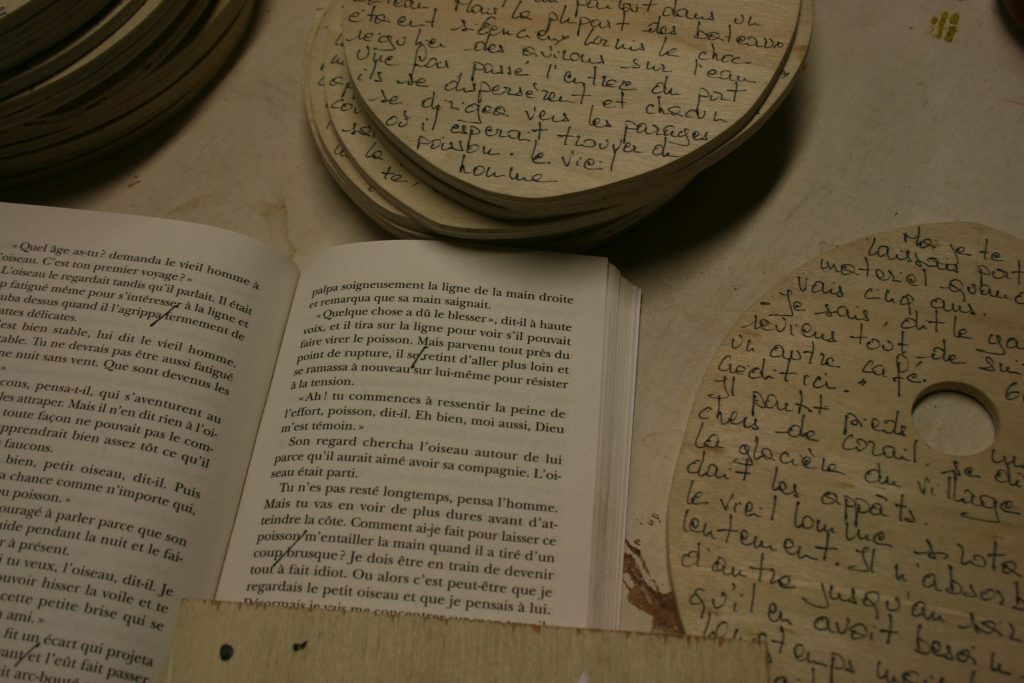 parlait dans un
bateau. Mais la plupart des bateaux
étaient silencieux hormis le choc
régulier des avirons sur l'eau
Une fois passé l'entrée du port
ils se dispersèrent et chacun
se dirigea vers les parages
où il espérait trouver du
poisson. Le vieil
homme
«Quel âge as-tu? demanda le vieil homme à
l'oiseau. C'est ton premier voyage?»
L'oiseau le regardait tandis qu'il parlait. Il était
p fatigué même pour s'intéresser à la ligne et
uba dessus quand il l'agrippa fermement de
attes délicates.
est bien stable, lui dit le vieil homme.
table. Tu ne devrais pas être aussi fatigué
ne nuit sans vent. Que sont devenus les
»
cons, pensa-t-il, qui s'aventurent au
les attraper. Mais il n'en dit rien à l'oi-
toute façon ne pouvait pas le com-
pprendrait bien assez tôt ce qu'il
faucons.
bien, petit oiseau, dit-il. Puis
a chance comme n'importe qui,
ou poisson.»
ouragé à parler parce que son
aide pendant la nuit et le fai-
r à présent.
i tu veux, l'oiseau, dit-il. Je
ouvoir hisser la voile et te
cette petite brise qui se
ami.»
fit un écart qui projeta
vant et l'eût fait passer
it arc-bouté
palpa soigneusement la ligne de la main droite
et remarqua que sa main saignait.
«Quelque chose a dû le blesser», dit-il à haute
voix, et il tira sur la ligne pour voir s'il pouvait
faire virer le poisson. Mais parvenu tout près du
point de rupture, il se retint d'aller plus loin et
se ramassa à nouveau sur lui-même pour résister
à la tension.
«Ah! tu commences à ressentir la peine de
l'effort, poisson, dit-il. Eh bien, moi aussi, Dieu
m'est témoin.»
Son regard chercha l'oiseau autour de lui
parce qu'il aurait aimé avoir sa compagnie. L'oi-
seau était parti.
Tu n'es pas resté longtemps, pensa l'homme.
Mais tu vas en voir de plus dures avant d'at-
teindre la côte. Comment ai-je fait pour laisser ce
poisson m'entailler la main quand il a tiré d'un
coup brusque? Je dois être en train de devenir
tout à fait idiot. Ou alors c'est peut-être que je
regardais le petit oiseau et que je pensais à lui.
Désormais je vais me concentrer
Moi je te
laissais port
matériel quand
vais cinq ans.
- Je sais, dit le ga
reviens tout de sui
un autre café.
crédit ici."
Il partit pieds
chers de corail. se di
la glacière du village
dait les appâts.
le vieil homme sirota
lentement. Il n'absorb
d'autre jusqu'au soir
qu'il en avait besoin
longtemps